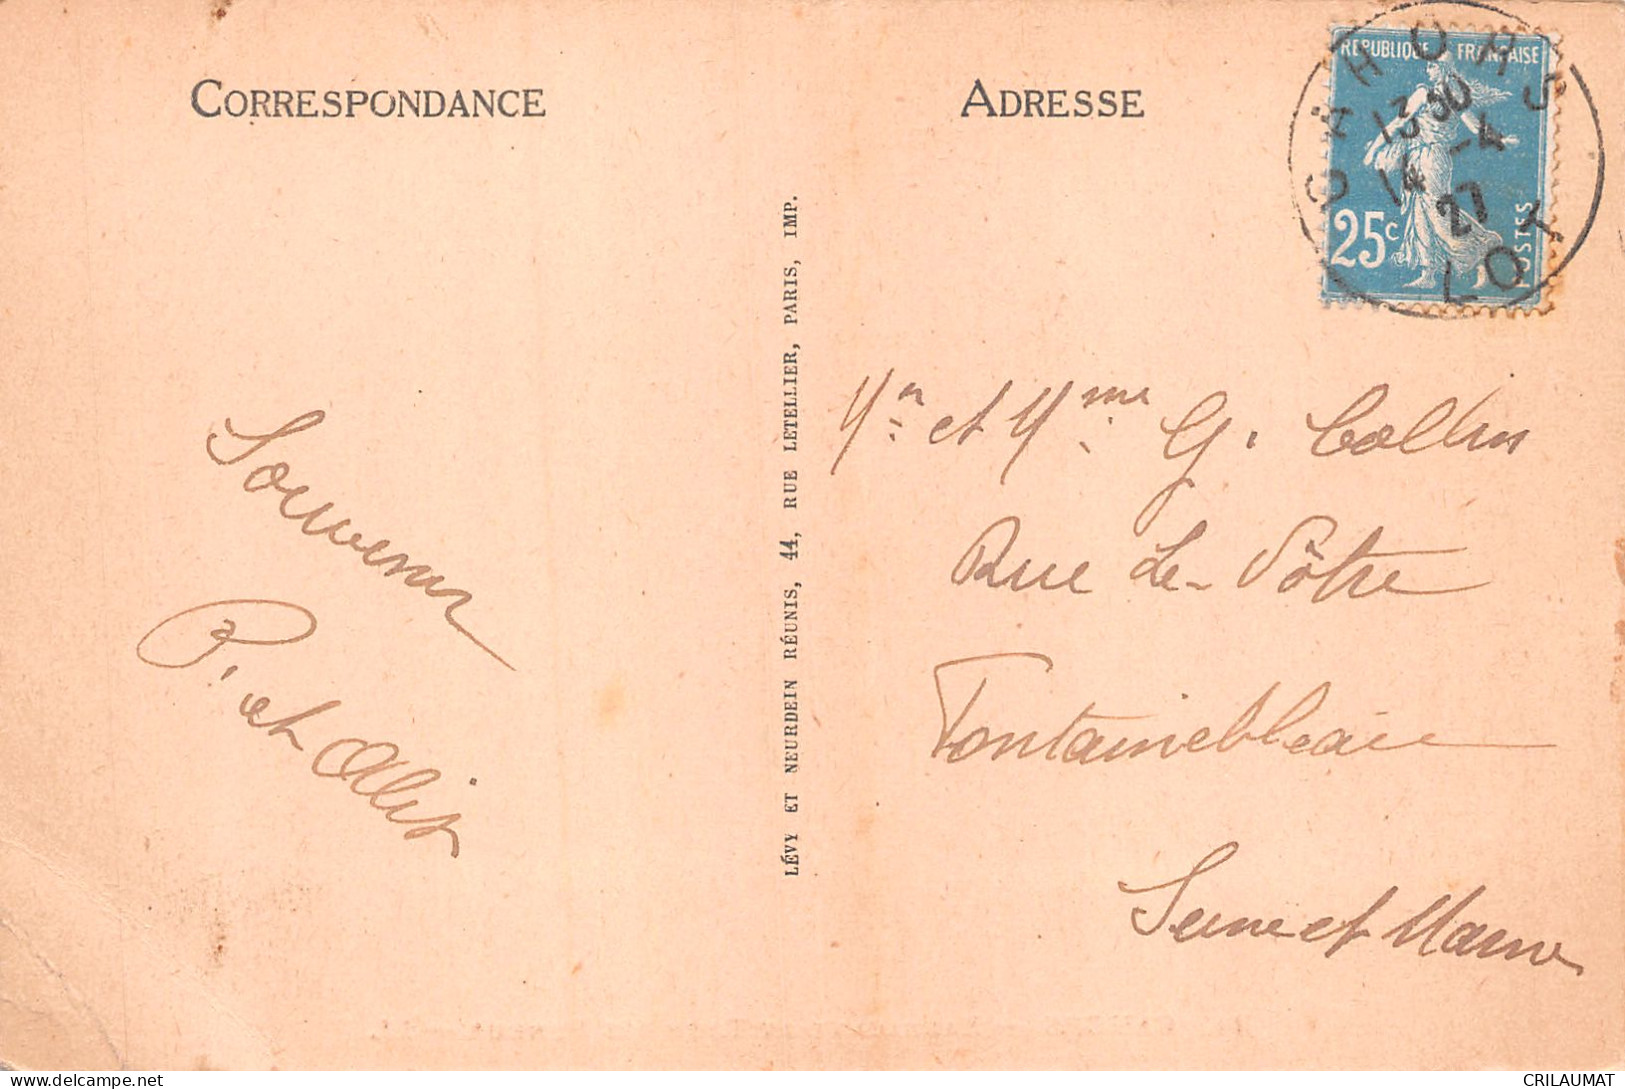 CORRESPONDANCE
Souvenir
P. et Alix
LÉVY ET NEURDEIN RÉUNIS, 44, RUE LETELLIER, PARIS, IMP.
ADRESSE
RÉPUBLIQUE FRANÇAISE
25c
POSTES
CAHORS
13 30
14 -4
27
LOT
Mr et Mme G. Collin
Rue Le-Nôtre
Fontainebleau
Seine et Marne
CRILAUMAT